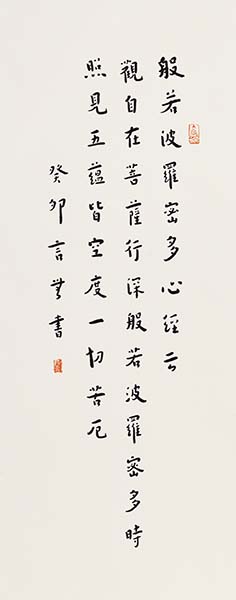 般若波羅密多心經云
觀自在菩薩行深般若波羅密多時
照見五蘊皆空度一切苦厄
癸卯言無書